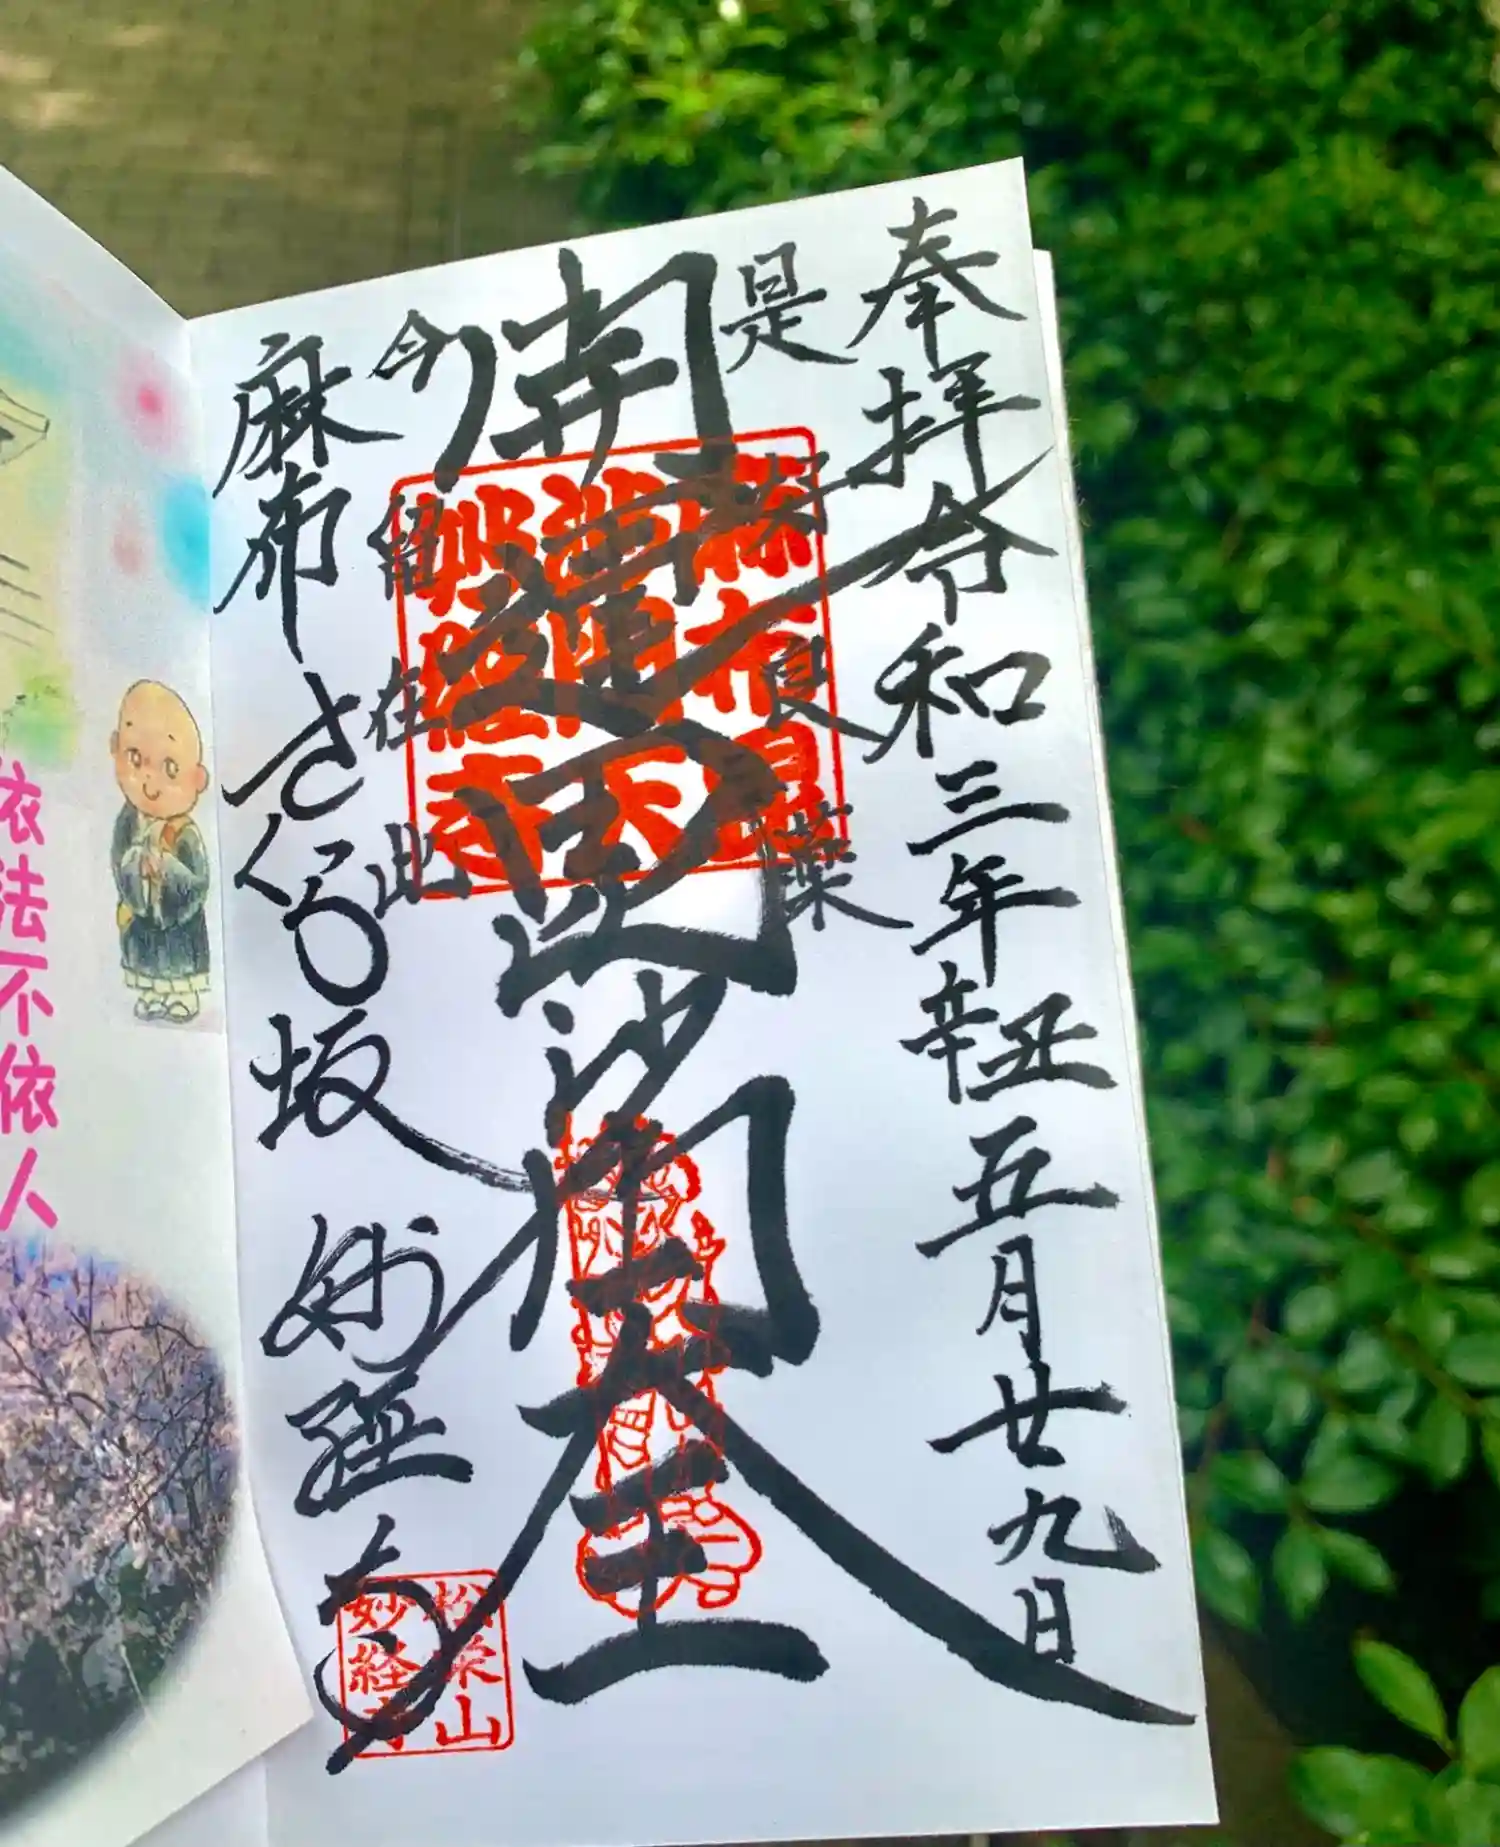 奉拝 令和三年辛丑五月廿九日
是好良薬
開運毘沙門天王
今留在此
麻布さくら坂 妙経寺
麻布
毘沙門天
妙経寺
松栄山
妙経寺
依法不依人